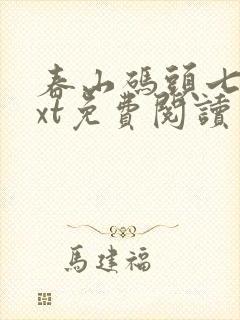 春山碼頭七
xt免費閱讀
馬建福